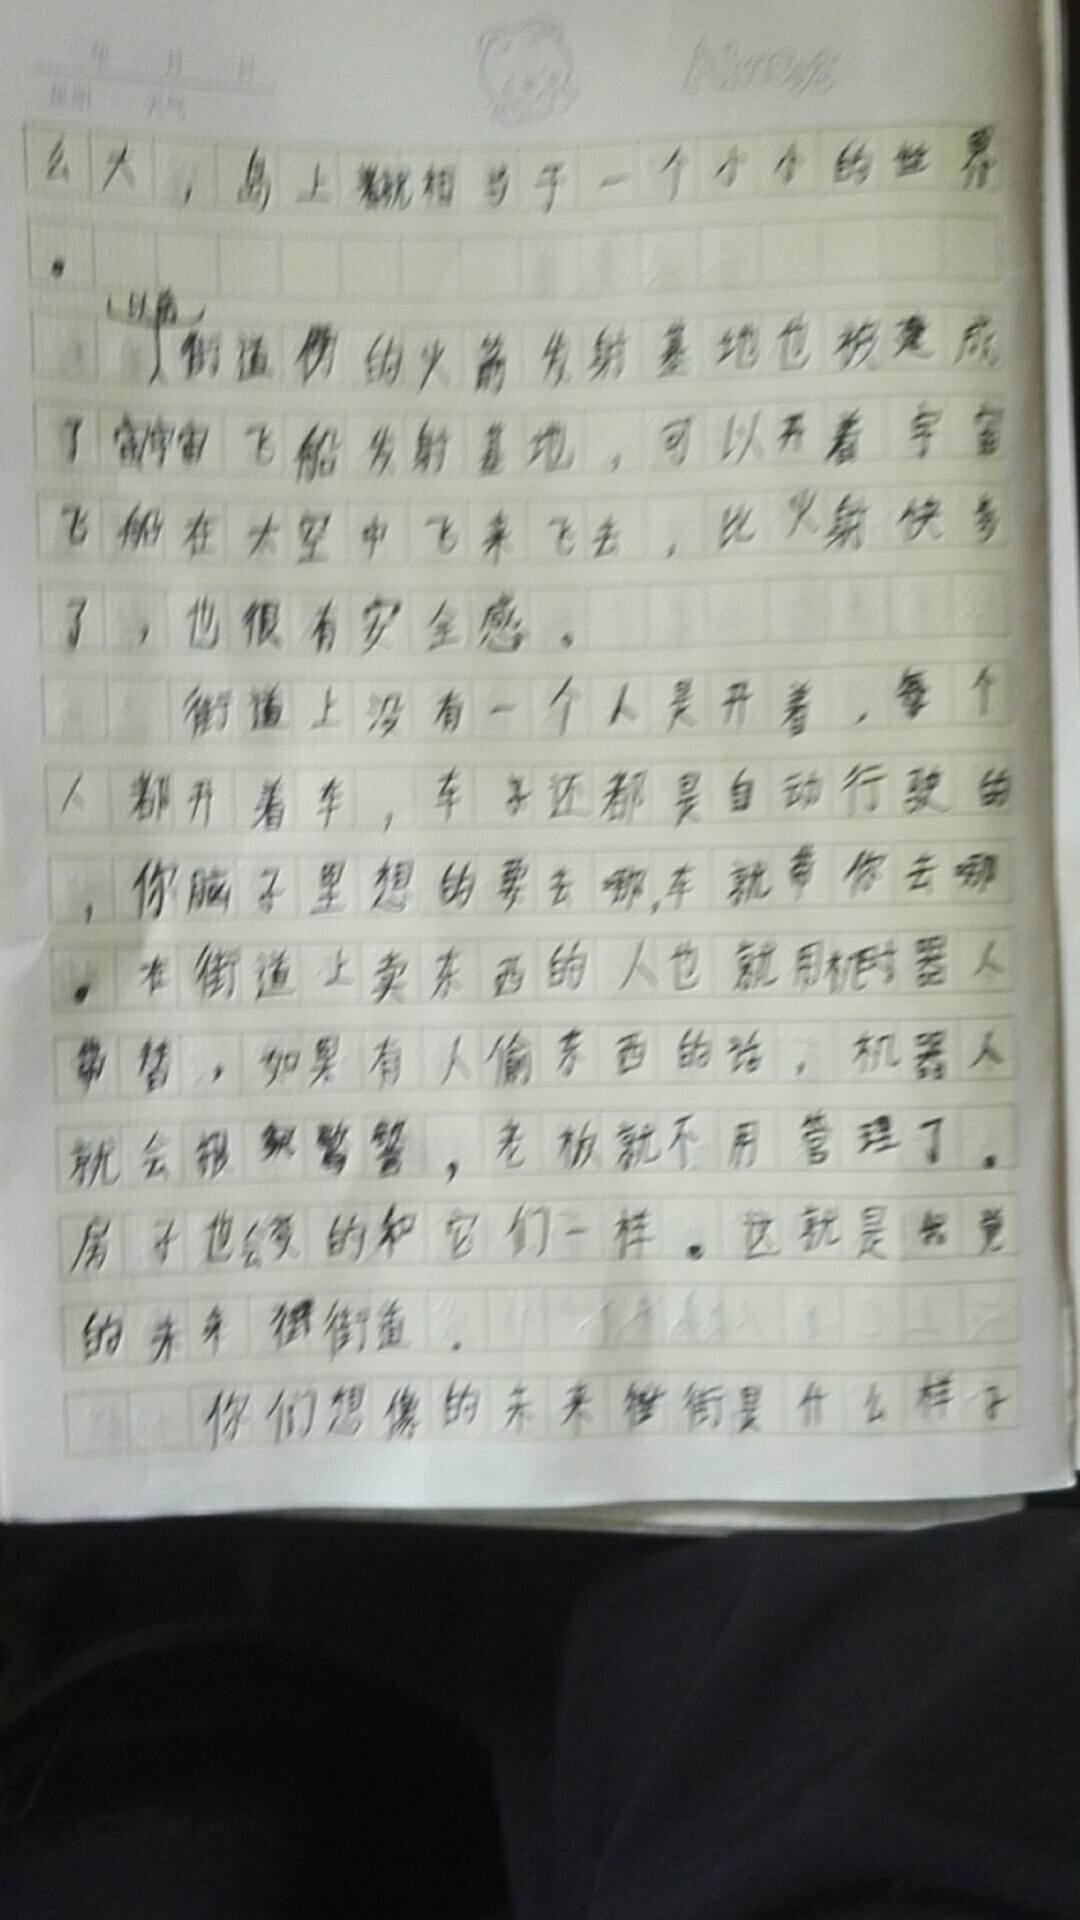 年 月 日
星期 天气
么大，岛上就相当于一个小小的世界
。
（以前）
街道旁的火箭发射基地也被建成
了宇宙飞船发射基地，可以开着宇宙
飞船在太空中飞来飞去，比火射快多
了，也很有安全感。
街道上没有一个人是开着，每个
人都开着车，车子还都是自动行驶的
，你脑子里想的要去哪,车就带你去哪
。在街道上卖东西的人也就用机器人
带替，如果有人偷东西的话，机器人
就会报警，老板就不用管理了。
房子也会变的和它们一样。这就是
的未来街道。
你们想像的未来街是什么样子